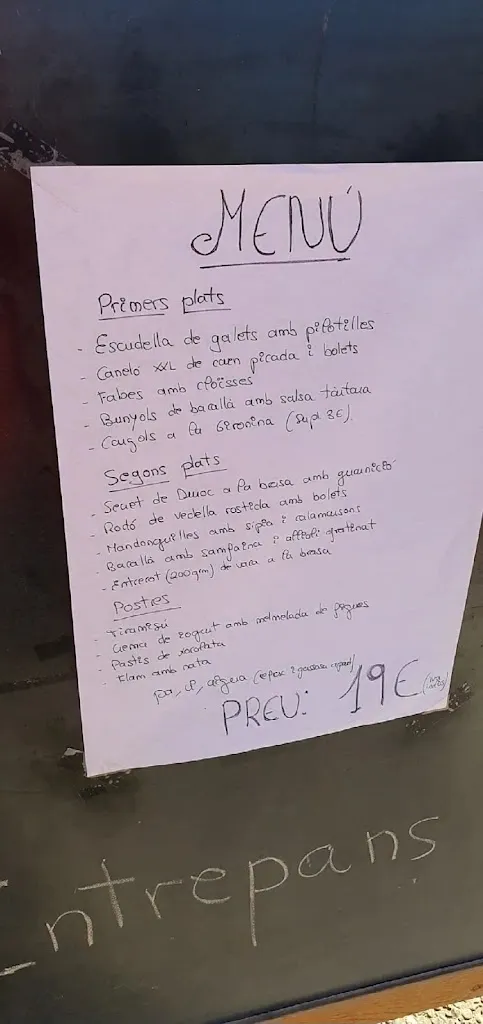 MENÚ
Primers plats
- Escudella de galets amb pilotilles
- Caneló XXL de carn picada i bolets
- Fabes amb cloïsses
- Bunyols de bacallà amb salsa tàrtara
- Cargols a la Gironina (Supl. 3€).
Segons plats
- Secret de Duroc a la brasa amb guarnició
- Rodó de vedella rostida amb bolets
- Mandonguilles amb sípia i calamarsons
- Bacallà amb samfaina i allioli gratinat
- Entrecot (200grm) de vaca a la brasa
Postres
- Tiramisú
- Crema de iogurt amb melmelada de figues
- Pastís de xocolata
- Flam amb nata
pa, vi, aigua
PREU: 19€ (IVA inclòs)
Entrepans